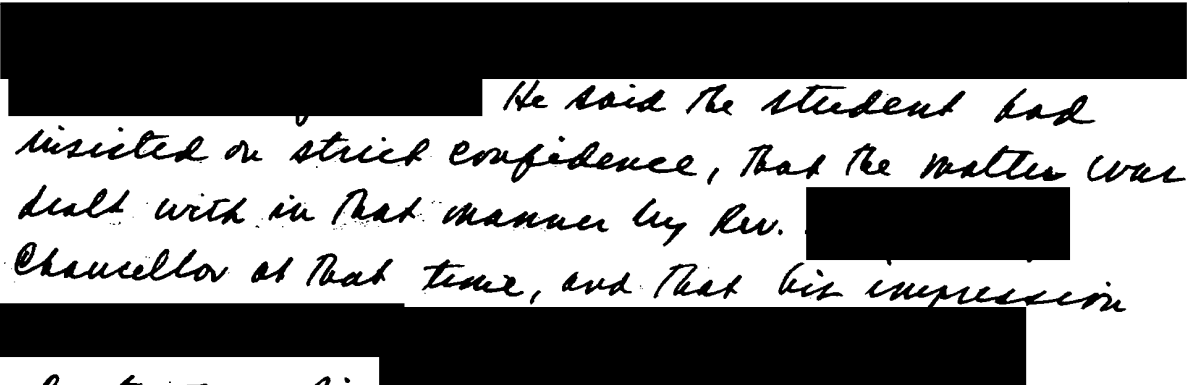 He said the student had
insisted on strict confidence, that the matter was
dealt with in that manner by Rev.
Chancellor at that time, and that his impression